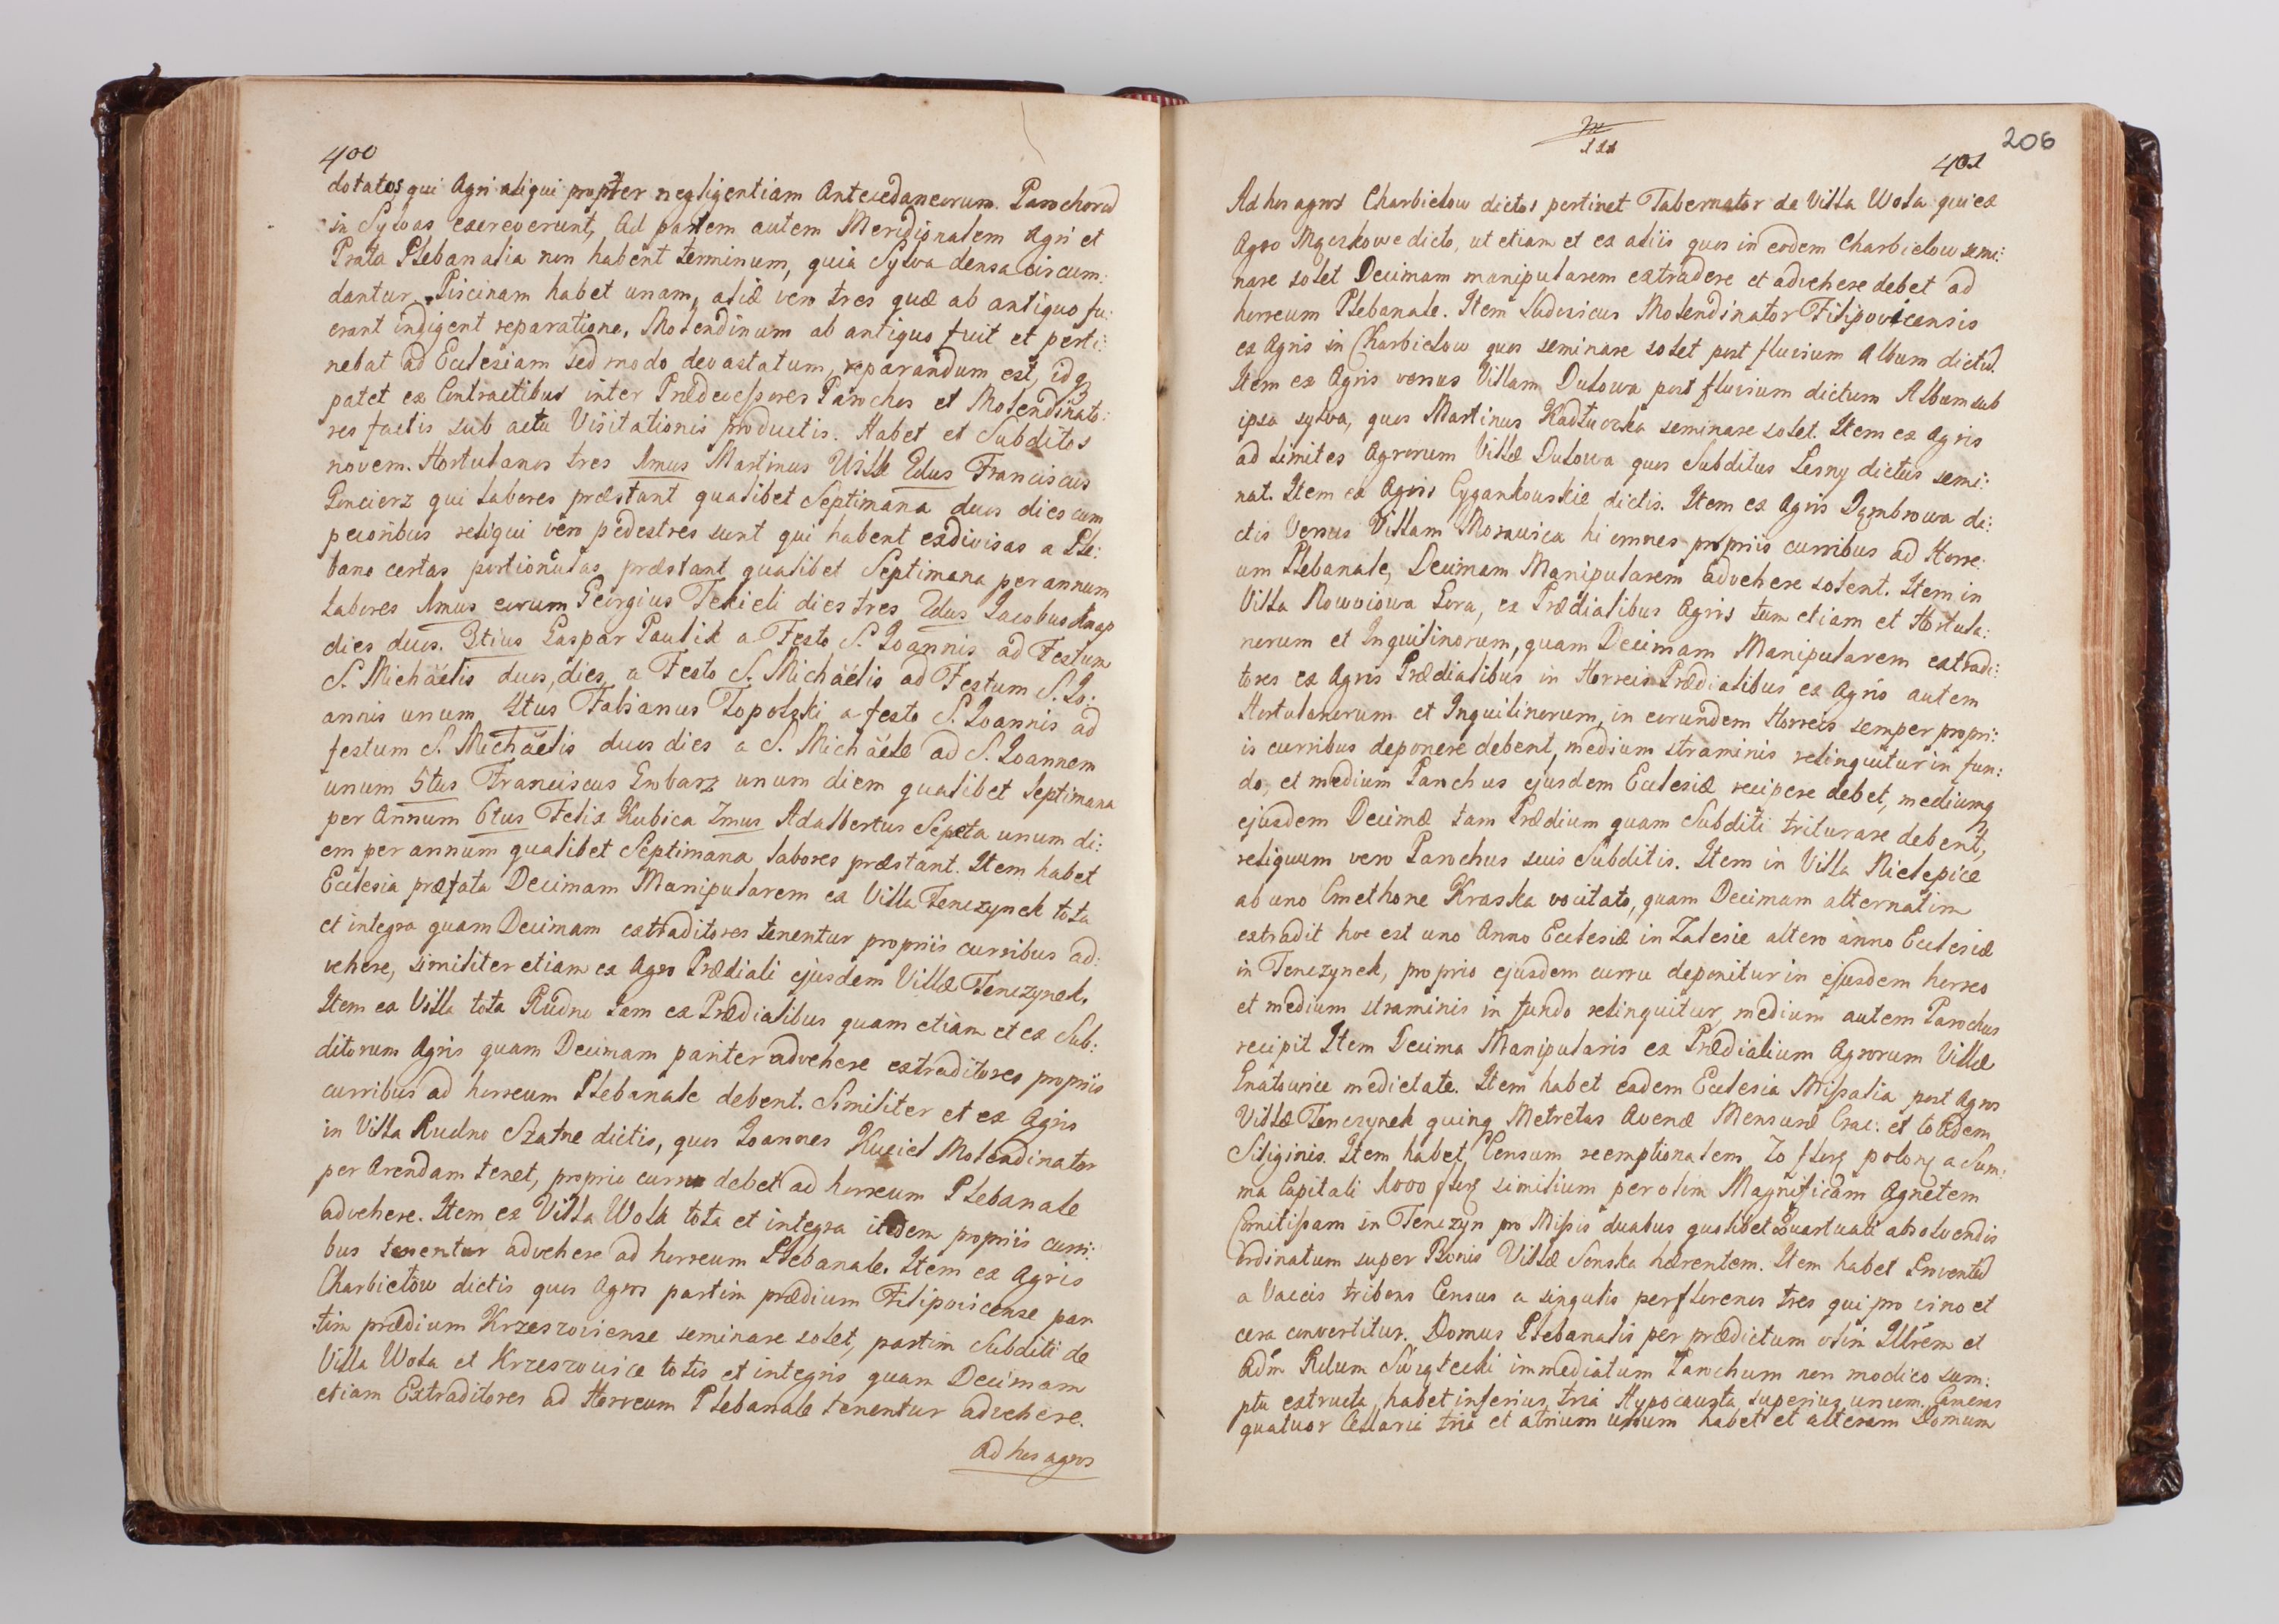 400
dotatos qui Agri aliqui propter negligentiam Antecedaneorum Parochorũ
in Sylvas excreverunt, Ad partem autem Meridionalem Agri et
Prata Plebanalia non habent terminum, quia Sylva densa circum:
dantur. Piscinam habet unam, aliæ vero tres quæ ab antiquo fu:
erant indigent reparatione, Molendinum ab antiquo fuit et perti:
nebat ad Ecclesiam sed modo devastatum, reparandum est, idq
patet ex Contractibus inter Prædecessores Parochos et Molendinato:
res factis sub actu Visitationis productis. Habet et Subditos
novem. Hortulanos tres 1mus Martinus 2dus Franciscus
Gencierz qui labores præstant qualibet Septimana duos dies cum
pecoribus reliqui vero pedestres sunt qui habent exdivisas a Ple:
bano certas portionulas, præstant qualibet Septimana per annum
labores 1mus eorum Georgius Tekieli dies tres 2dus Jacobus Knap
dies duos. 3tius Gaspar Paulik a Festo S. Joannis ad Festum
S. Michäelis duos, dies, a Festo S. Michäelis ad Festum S. Jo:
annis unum 4tus Fabianus Topolski a festo S. Joannis ad
festum S. Michäelis duos dies a S. Michäele ad S. Joannem
unum 5tus Franciscus Embarz unum diem qualibet septimana
per Annum 6tus Felix Kubica 7mus Adalbertus Sepeta unum di:
em per annum qualibet Septimana labores præstant. Item habet
Ecclesia præfata Decimam Manipularem ex Villa Tenczynek tota
et integra quam Decimam extraditores tenentur propriis curribus ad:
vehere, similiter etiam ex Agro Prædiali ejusdem Villæ Tenczynek.
Item ex Villa tota Rudno tam ex Prædialibus quam etiam et ex Sub:
ditorum Agris quam Decimam pariter advehere extraditores propriis
curribus ad horreum Plebanale debent. Similiter et ex Agris
in Villa Rudno Szatne dictis, quos Joannes Kuciel Molendinator
per Arendam tenet, proprio curru debet ad horreum Plebanale
advehere. Item ex Villa Wola tota et integra itidem propriis curri:
bus tenentur advehere ad horreum Plebanale. Item ex Agris
Charbielow dictis quos Agros partim prædium Filipovicense par
tim prædium Krzeszoviense seminare solet, partim Subditi de
Villa Wola et Krzeszovice totis et integris quam Decimam
etiam Extraditores ad Horreum Plebanale tenentur advehere.
Ad hos agros
206
401
Ad hos agros Charbielow dictos pertinet Tabernator de Villa Wola qui ex
Agro Mączkowe dicto, ut etiam et ex aliis quos in eodem Charbielow semi:
nare solet Decimam manipularem extradere et advehere debet ad
horreum Plebanale. Item Ludovicus Molendinator Filipovicensis
ex Agris in Charbielow quos seminare solet post fluvium Album dictũ.
Item ex Agris versus Villam Dulowa post fluvium dictum Album sub
ipsa sylva, quos Martinus seminare solet. Item ex Agris
ad limites Agrorum Villæ Dulowa quos Subditus Lesny dictus semi:
nat. Item ex Agris Cygankouskie dictis. Item ex Agris Dąmbrowa di:
ctis versus Villam Morawica hi omnes propriis curribus ad Horre:
um Plebanale, Decimam Manipularem advehere solent. Item in
Villa Nowoiowa Gora, ex Prædialibus Agris tum etiam et Hortula:
norum et Inquilinorum, quam Decimam Manipularem extradi:
tores ex Agris Prædialibus in Horreis Prædialibus ex Agris autem
Hortulanorum et Inquilinorum, in eorundem Horreis semper propri:
is curribus deponere debent, medium straminis relinquitur in fun:
do, et medium Parochus ejusdem Ecclesiæ recipere debet, mediumq
ejusdem Decimæ tam Prædium quam Subditi triturare debent,
reliquum vero Parochus suis Subditis. Item in Villa Nielepice
ab uno Cmethone Kraska vocitato, quam Decimam alternatim
extradit hoc est uno Anno Ecclesiæ in Zalesie altero anno Ecclesiæ
in Tenczynek, proprio ejusdem curru deponitur in ejusdem horreo
et medium straminis in fundo relinquitur, medium autem Parochus
recipit Item Decima Manipularis ex Prædialium Agrorum Villæ
Gnatowice medietate. Item habet eadem Ecclesia Missalia post Agros
Villæ Tenczynek quinq Metretas Avenæ Mensuræ Crac: et totidem
Siliginis. Item habet Censum reemptionalem 70 flor polon a Sum:
ma Capitali 1000 flor similium per olim Magnificam Agnetem
Comitissam in Tenczyn pro Missis duabus quolibet Quartuali absolvendis
ordinatum super Bonis Villæ Senska hærentem. Item habet Proventũ
a Vaccis tribus Census a singulis per florenos tres qui pro vino et
cera convertitur. Domus Plebanalis per prædictum olim Illrem et
Adm Rdum Swiątecki immediatum Parochum non modico sum:
ptu extructa, habet inferius tria Hypocausta, superius unum. Cameras
quatuor Cellaria tria et atrium unum habet et alteram Domum